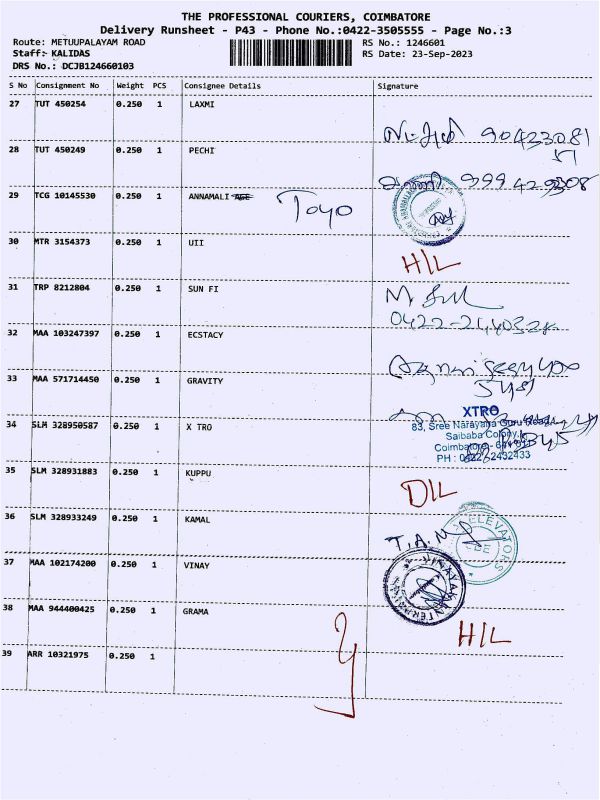 THE PROFESSIONAL COURIERS, COIMBATORE
Delivery Runsheet - P43 - Phone No.:0422-3505555 - Page No.:3
Route: METUUPALAYAM ROAD RS No.: 1246601
Staff: KALIDAS RS Date: 23-Sep-2023
DRS No.: DCJB124660103
S No Consignment No Weight PCS Consignee Details Signature
27 TUT 450254 0.250 1 LAXMI
28 TUT 450249 0.250 1 PECHI
29 TCG 10145530 0.250 1 ANNAMALI AGE Toyo
30 MTR 3154373 0.250 1 UII
H/L
31 TRP 8212804 0.250 1 SUN FI
32 MAA 103247397 0.250 1 ECSTACY
33 MAA 571714450 0.250 1 GRAVITY
34 SLM 328950587 0.250 1 X TRO
XTRO
83, Sree Narayana Guru Road,
Saibaba Colony,
Coimbatore -
PH : 0422-2432433
35 SLM 328931883 0.250 1 KUPPU
D/L
36 SLM 328933249 0.250 1 KAMAL
T.A.M
ELEVATORS
37 MAA 102174200 0.250 1 VINAY
VINAYAK
38 MAA 944400425 0.250 1 GRAMA
H/L
39 ARR 10321975 0.250 1